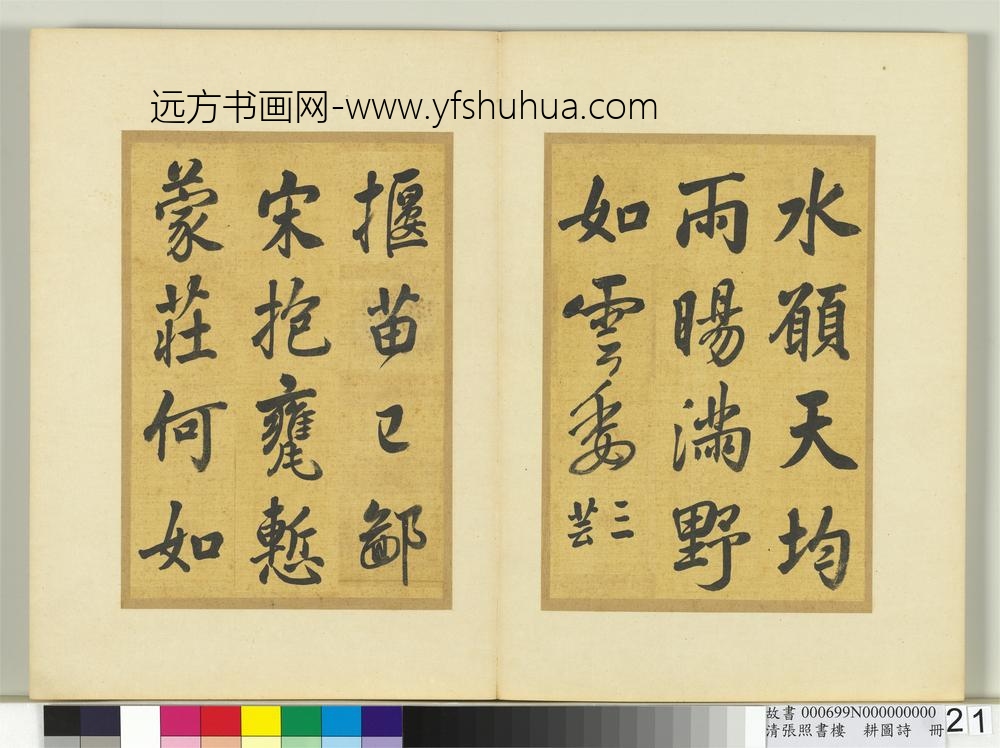 远方书画网-www.yfshuhua.com
水願天均
雨暘滿野
如雲委
三芸
揠苗已鄙
宋抱甕慙
蒙莊何如
故書 000699N000000000
清張照書樓 耕圖詩 冊
21